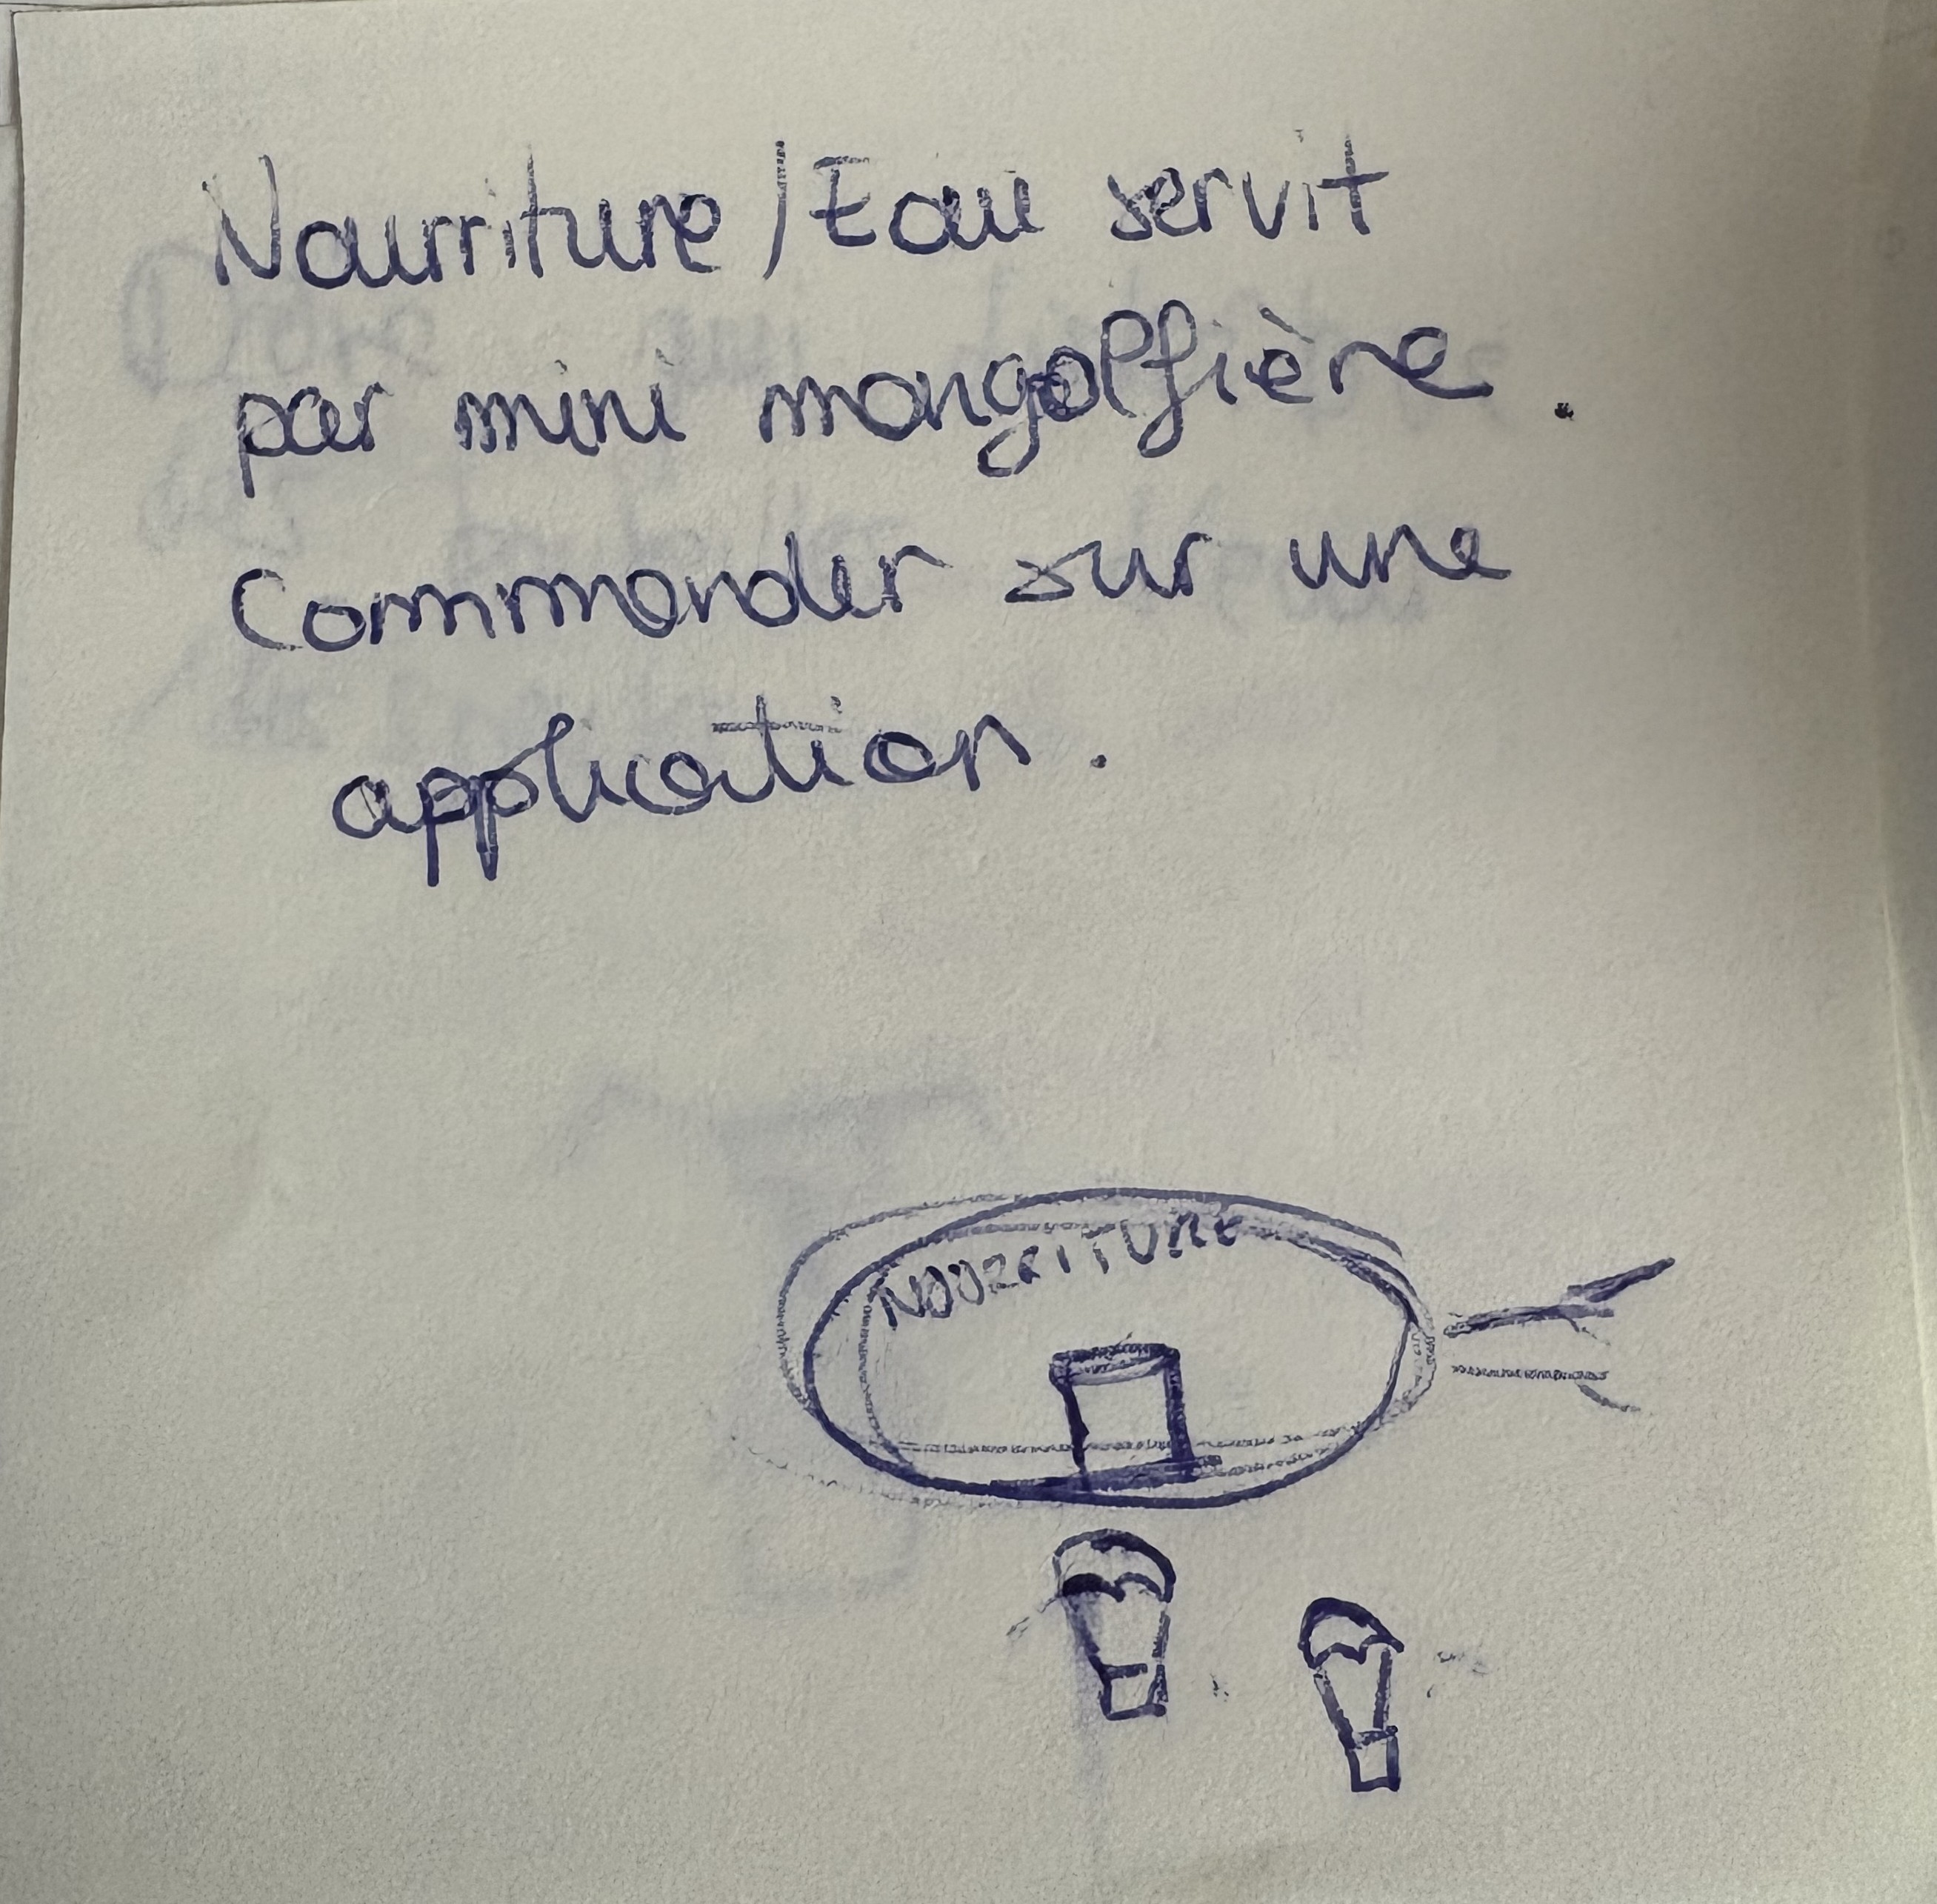 Nourriture / Eau servit
par mini mongolfière.
Commander sur une
application.
NOURRITURE